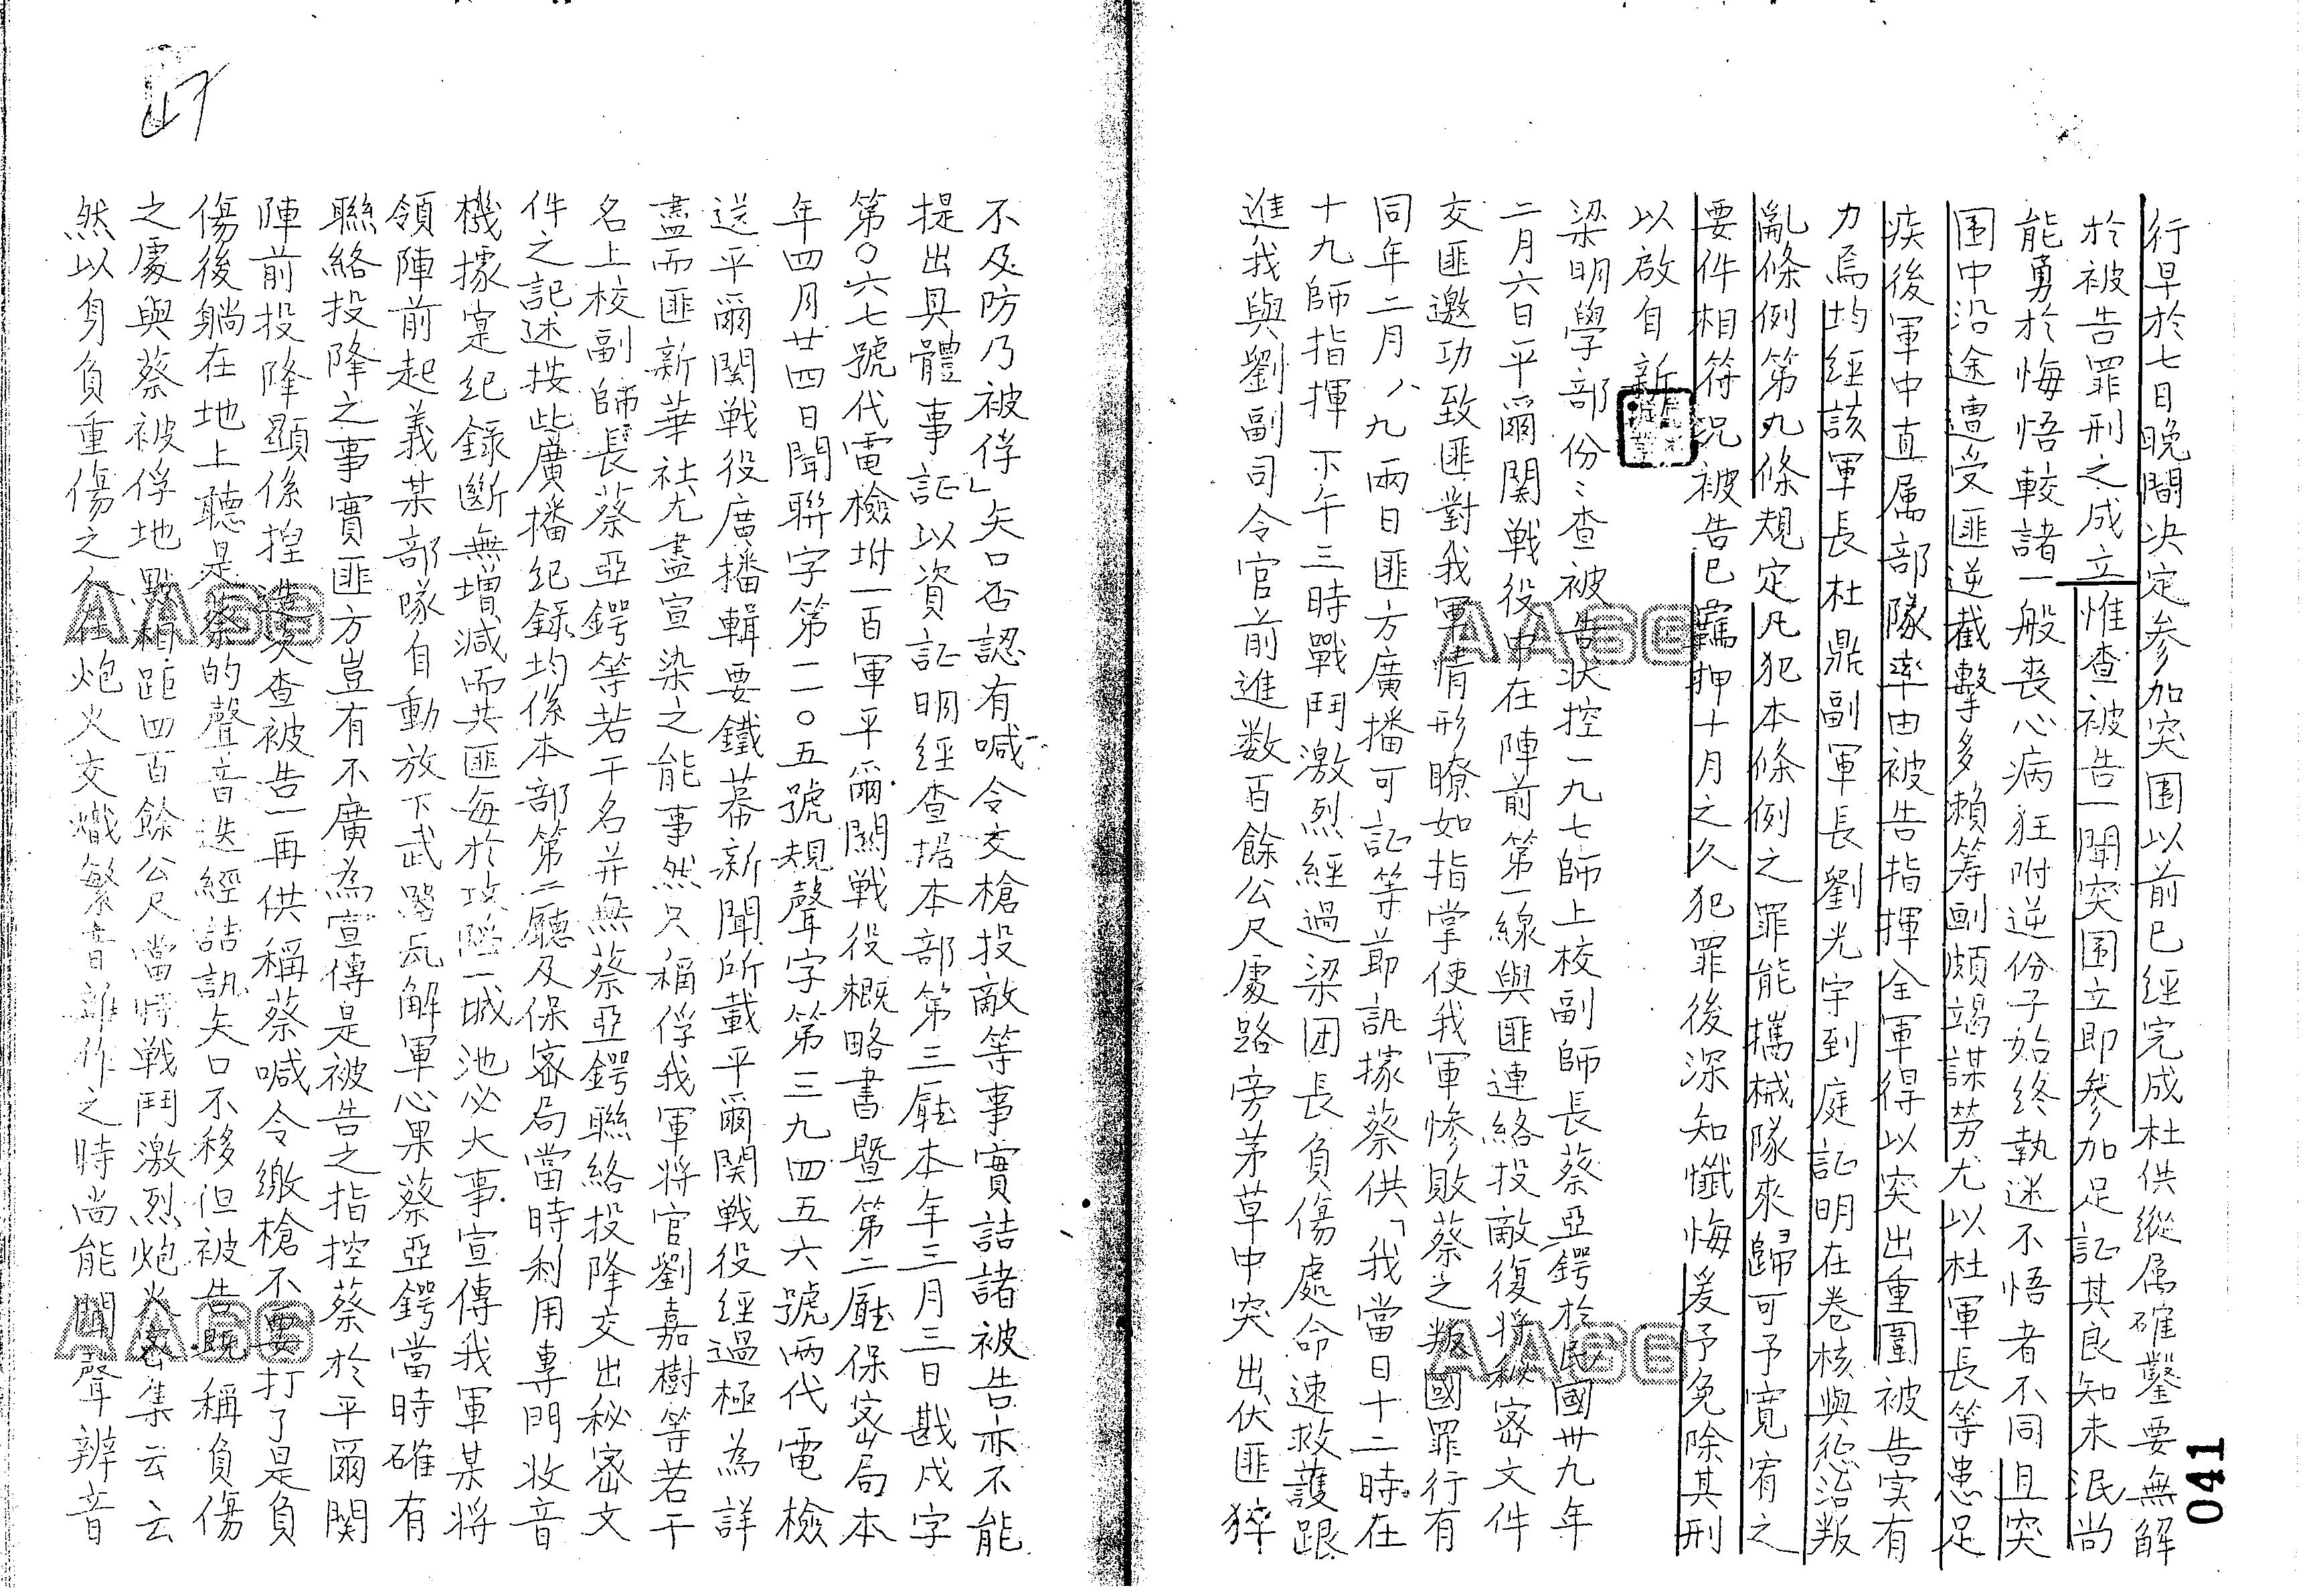 041
行早於七日晚間決定参加突围以前已經完成杜供縱属確鑿要無解
於被告罪刑之成立惟查被告一聞突围立即参加足証其良知未泯尚
能勇於悔悟較諸一般丧心病狂附逆份子始終執迷不悟者不同且突
围中沿途遭受匪逆截擊多賴筹劃頗竭謀劳尤以杜軍長等患足
疾後軍中直属部隊率由被告指揮全軍得以突出重圍被告实有
力焉均經該軍長杜鼎副軍長劉光宇到庭証明在卷核與惩治叛
亂條例第九條規定凡犯本條例之罪能攜械隊來歸可予寬宥之
要件相符况被告已羈押十月之久犯罪後深知懺悔爰予免除其刑
以啟自新
梁明學部份：查被告状控一九七師上校副師長蔡亞鍔於民國卅九年
二月六日平爾関戦役中在陣前第一線與匪連絡投敵復将秘密文件
交匪邀功致匪對我軍情形瞭如指掌使我軍惨敗蔡之叛國罪行有
同年二月八、九兩日匪方廣播可証等節訊據蔡供「我當日十二時在
十九師指揮下午三時戰鬥激烈經過梁团長負傷處命速救護跟
進我與劉副司令官前進数百餘公尺處路旁茅草中突出伏匪猝
不及防乃被俘」矢口否認有喊令交槍投敵等事實詰諸被告亦不能
提出具體事証以資証明經查据本部第三廳本年三月三日戡戍字
第〇六七號代電檢坿一百軍平爾關戦役概略書暨第二廳保密局本
年四月廿四日聞聨字第二一〇五號規聲字第三九四五六號両代電檢
送平爾関戦役廣播輯要鐵幕新聞所載平爾関戦役經過極為詳
盡而匪新華社尤盡宣染之能事然只稱俘我軍将官劉嘉樹等若干
名上校副師長蔡亞鍔等若干名并無蔡亞鍔聯絡投降交出秘密文
件之記述按此廣播紀録均係本部第二廳及保密局當時利用專門收音
機據寔紀録斷無增減而共匪每於攻陷一城池必大事宣傳我軍某将
領陣前起義某部隊自動放下武器瓦解軍心果蔡亞鍔當時確有
聯絡投降之事實匪方豈有不廣為宣傳是被告之指控蔡於平爾関
陣前投降顯係捏造又查被告一再供稱蔡喊令繳槍不要打了是負
傷後躺在地上聽是蔡的聲音迭經詰訊矢口不移但被告既稱負傷
之處與蔡被俘地點相距四百餘公尺當時戦鬥激烈炮火密集云云
然以身負重傷之人在炮火交熾繁音雜作之時尚能聞聲辨音